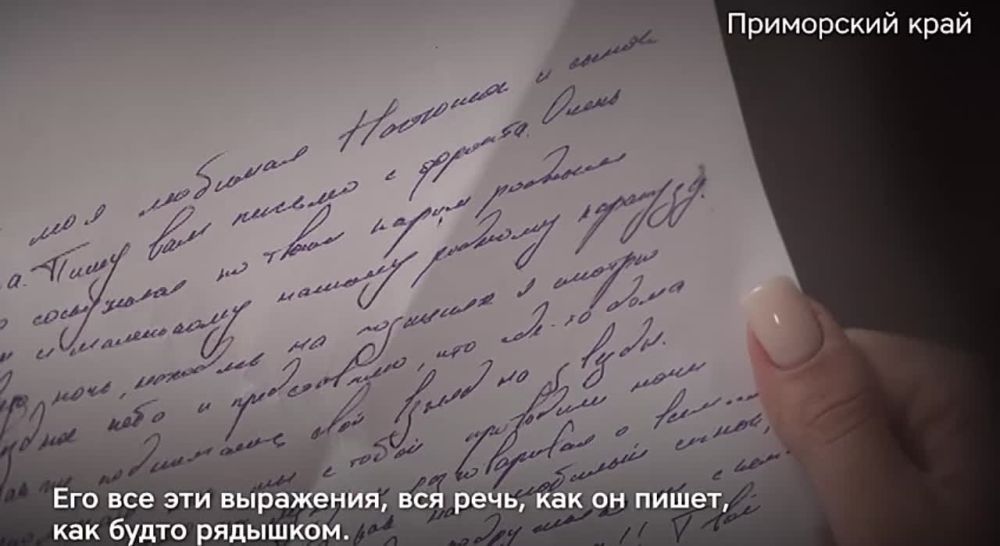 Приморский край
моя любимая Настюшка и сынок
а. Пишу вам письмо с фронта. Очень
соскучился по твоим карим родным
и маленькому нашему родному карапузу.
ночь, находясь на позициях я смотрю
небо и представляю, что где-то дома
поднимаешь свой взгляд на звёзды.
мы с тобой проводили ночи
разговаривая о всём
любимый сынок,
с кем
!! Твой
Его все эти выражения, вся речь, как он пишет,
как будто рядышком.